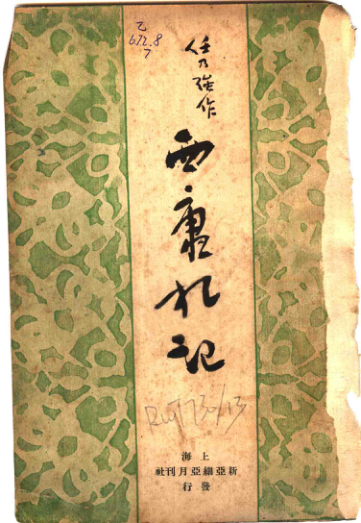 乙
672.8
7
任乃強作
西康札記
上海
新亞細亞月刊社
發行